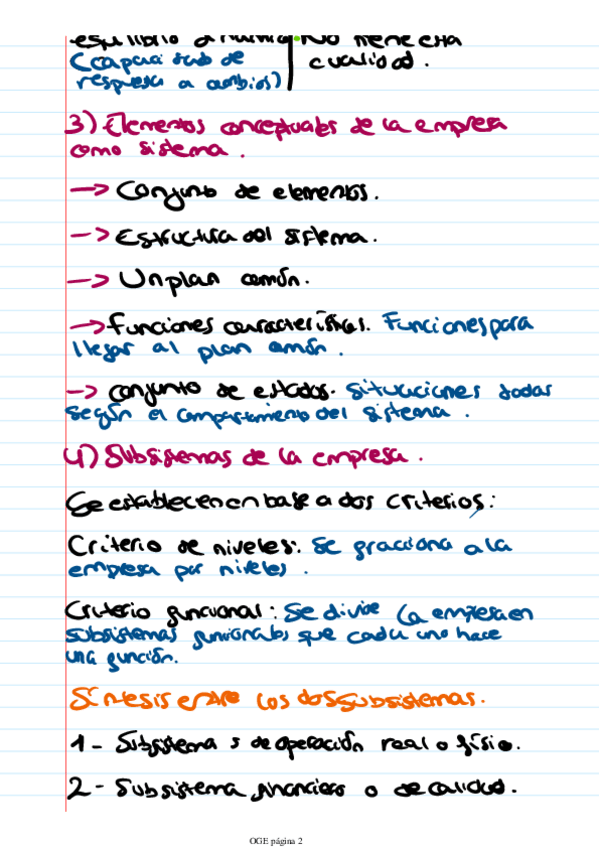 equilibrio dinámico No tiene esta
(capacidad de cualidad.
respuesta a cambios)
3) Elementos conceptuales de la empresa
como sistema.
→ Conjunto de elementos.
→ Estructura del sistema.
→ Un plan común.
→ Funciones características. Funciones para
llegar al plan común.
→ Conjunto de estados. Situaciones dadas
según el comportamiento del sistema.
4) Subsistemas de la empresa.
Se establecen en base a dos criterios:
Criterio de niveles: Se fracciona a la
empresa por niveles.
Criterio funcional: Se divide la empresa en
subsistemas funcionales que cada uno hace
una función.
Síntesis entre los dos subsistemas.
1 - Subsistema s de operación real o físio.
2 - Subsistema financiero o de calidad.
OGE página 2